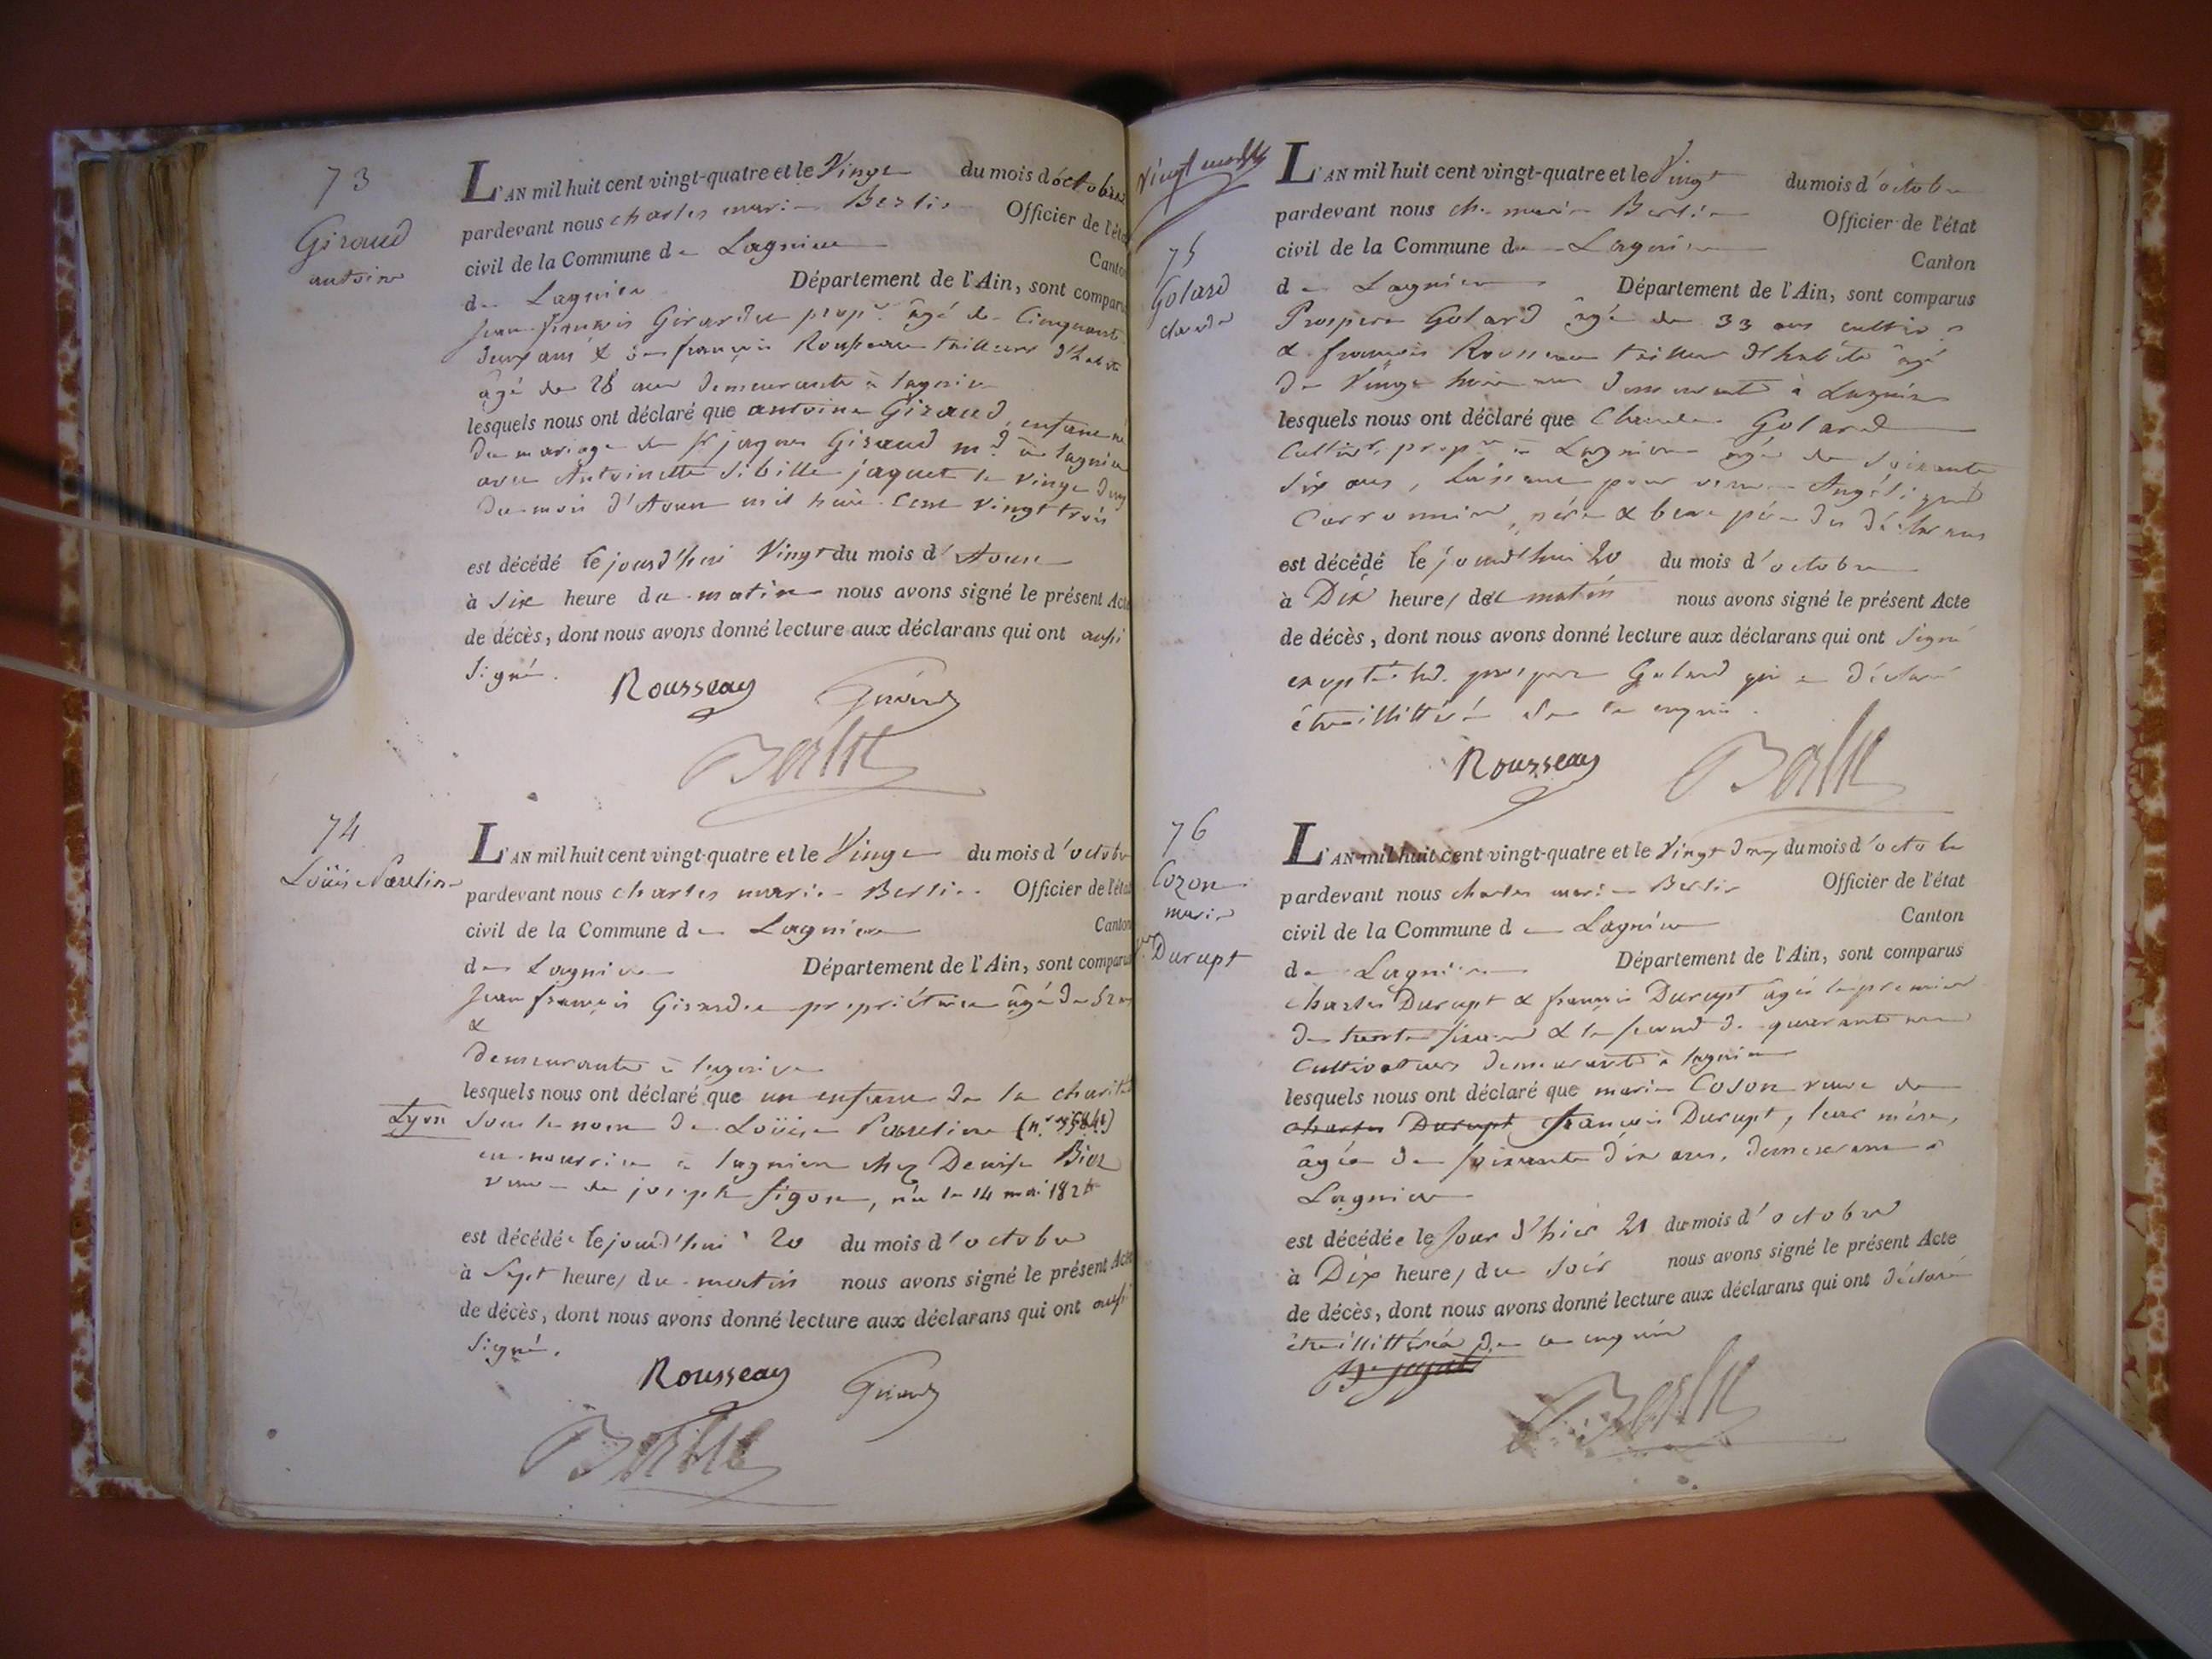 73
Giraud
antoine
L'AN mil huit cent vingt-quatre et le Vingt du mois d'octobre
pardevant nous charles marie Berlie Officier de l'état
civil de la Commune de Lagnieu Canton
de Lagnieu Département de l'Ain, sont comparus
jean françois Girardie prop.re âgé de Cinquante
deux ans & françois Rousseau tailleur d'habits
âgé de 28 ans demeurants à lagnieu
lesquels nous ont déclaré que antoine Giraud, enfant né
du mariage de Sr jaques Giraud m.d à lagnieu
avec Antoinette Sibille jaquet le vingt deux
du mois d'Aoust mil huit Cent Vingt trois
est décédé le jourd'hui Vingt du mois d'Aoust
à Six heure du matin nous avons signé le présent Acte
de décès, dont nous avons donné lecture aux déclarans qui ont aussi
signé.
Rousseau
74
Loüise Pauline
L'AN mil huit cent vingt-quatre et le Vingt du mois d'octobre
pardevant nous charles marie Berlie Officier de l'état
civil de la Commune de Lagnieu Canton
de Lagnieu Département de l'Ain, sont comparus
jean françois Girardie propriétaire âgé de 52 ans
&
demeurants à lagnieu
lesquels nous ont déclaré que un enfant de la charité
Lyon sous le nom de Loüise Pauline
en nourrice à lagnieu chez Denise Bios
veuve de joseph figon, née le 14 mai 1824
est décédée le jourd'hui 20 du mois d'octobre
à Sept heures du matin nous avons signé le présent Acte
de décès, dont nous avons donné lecture aux déclarans qui ont aussi
signé.
Rousseau
Vingt
75
Golard
claude
L'AN mil huit cent vingt-quatre et le Vingt du mois d'octobre
pardevant nous ch. marie Berlie Officier de l'état
civil de la Commune de Lagnieu Canton
de Lagnieu Département de l'Ain, sont comparus
Prosper Golard âgé de 33 ans cultiv.r
& françois Rousseau tailleur d'habits âgé
de Vingt huit ans demeurants à Lagnieu
lesquels nous ont déclaré que Claude Golard
Cultiv.r prop.re à Lagnieu âgé de soixante
six ans, laissant pour veuve Angélique
Carronnier, père & beau père des déclarans
est décédé le jourd'hui 20 du mois d'octobre
à Dix heures du matin nous avons signé le présent Acte
de décès, dont nous avons donné lecture aux déclarans qui ont signé
excepté led. prosper Golard qui a déclaré
être illittéré de ce enquis.
Rousseau
76
Cozon
marie
Ve Durupt
L'AN mil huit cent vingt-quatre et le Vingt deux du mois d'octobre
pardevant nous charles marie Berlie Officier de l'état
civil de la Commune de Lagnieu Canton
de Lagnieu Département de l'Ain, sont comparus
charles Durupt & françois Durupt âgés le premier
de trente six ans & le second de quarante ans
Cultivateurs demeurants à lagnieu
lesquels nous ont déclaré que marie Coson veuve de
charles Durupt françois Durupt, leur mère,
âgée de soixante dix ans, demeurant à
Lagnieu
est décédée le jour d'hier 21 du mois d'octobre
à Dix heures du soir nous avons signé le présent Acte
de décès, dont nous avons donné lecture aux déclarans qui ont déclaré
être illittérés de ce enquis